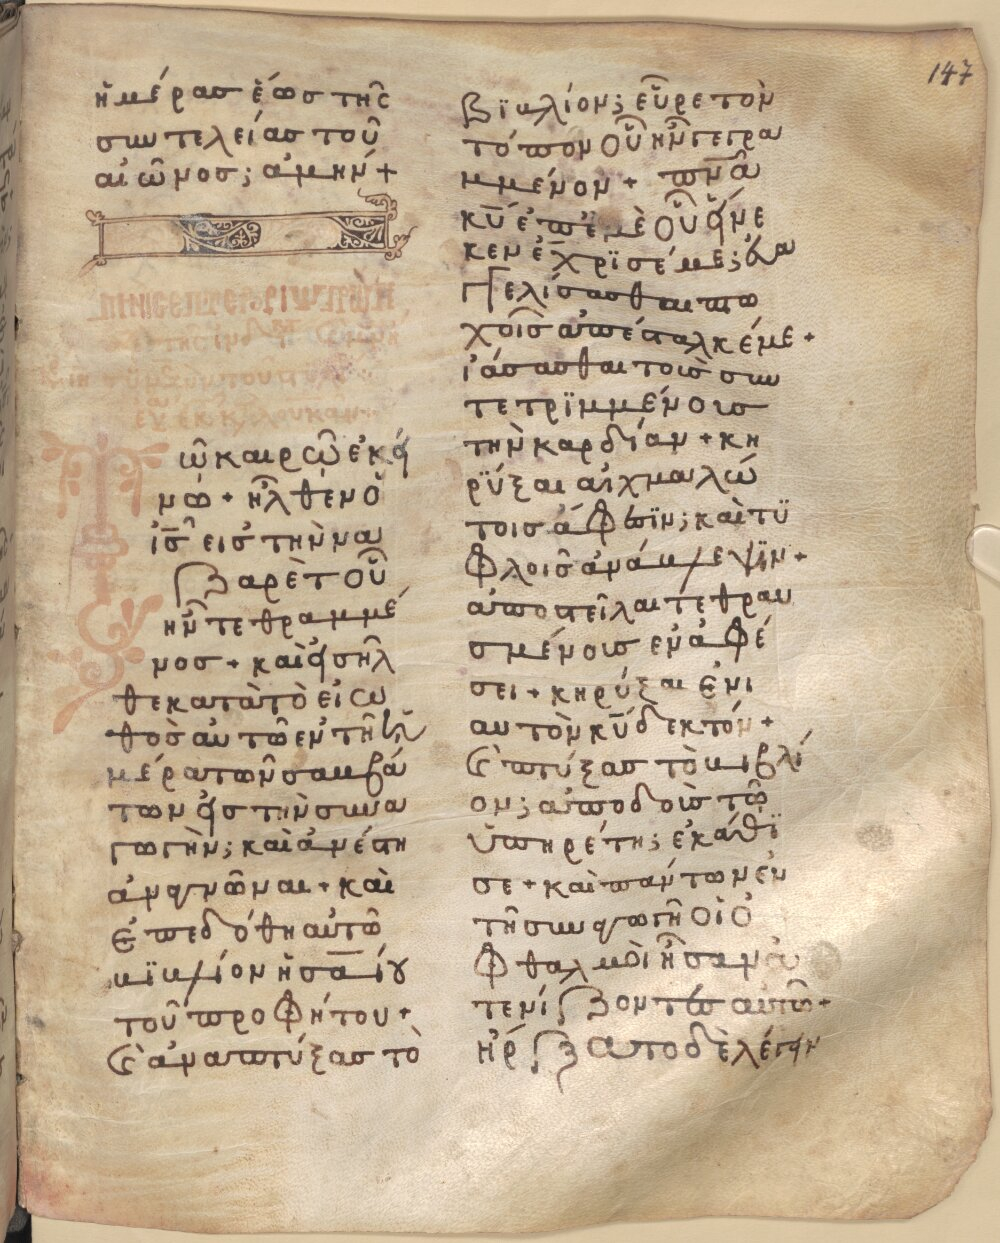 147
ἡμέρας ἕως τῆς
συντελείας τοῦ
αἰῶνος; ἀμήν +
ῶ καιρῶ ἐκεί
νω + ἦλθεν ὁ
ἰς̅ εἰς τὴν να
ζαρὲτ οὗ
ἦν τεθραμμέ
νος + καὶ εἰσῆλ
θε κατὰ τὸ εἰω
θὸς αὐτῶ ἐν τῆ ἡ
μέρα τῶν σαββά
των εἰς τὴν συνα
γωγὴν; καὶ ἀνέστη
ἀναγνῶναι + καὶ
ἐπεδόθη αὐτῶ
βϊβλίον ἡσαΐου
τοῦ προφήτου +
καὶ ἀναπτύξας τὸ
βϊβλίον; εὗρε τὸν
τόπον οὗ ἦν γεγρα
μμένον + πν̅α̅
κ̅υ̅ ἐπ' ἐμὲ οὗ εἵνε
κεν ἔχρϊσέ με; εὐα
γγελίσασθαι πτω
χοῖς ἀπέσταλκέ με +
ἰάσασθαι τοὺς συν
τετρϊμμένους
τὴν καρδίαν + κη
ρΰξαι αἰχμαλώ
τοις ἄφεσϊν; καὶ τυ
φλοῖς ἀνάβλεψϊν +
ἀποστεῖλαι τεθραυ
σμένους ἐν ἀφέ
σει + κηρύξαι ἐνι
αυτὸν κ̅υ̅ δεκτόν +
καὶ πτύξας τὸ βιβλί
ον; ἀποδοὺς τῶ
ὑπηρέτη; ἐκάθϊ
σε + καὶ πάντων ἐν
τῆ συναγωγῆ οἱ ὀ
φθαλμοὶ ἦσαν ἀ
τενίζοντες αὐτῶ +
ἤρξατο δὲ λέγειν